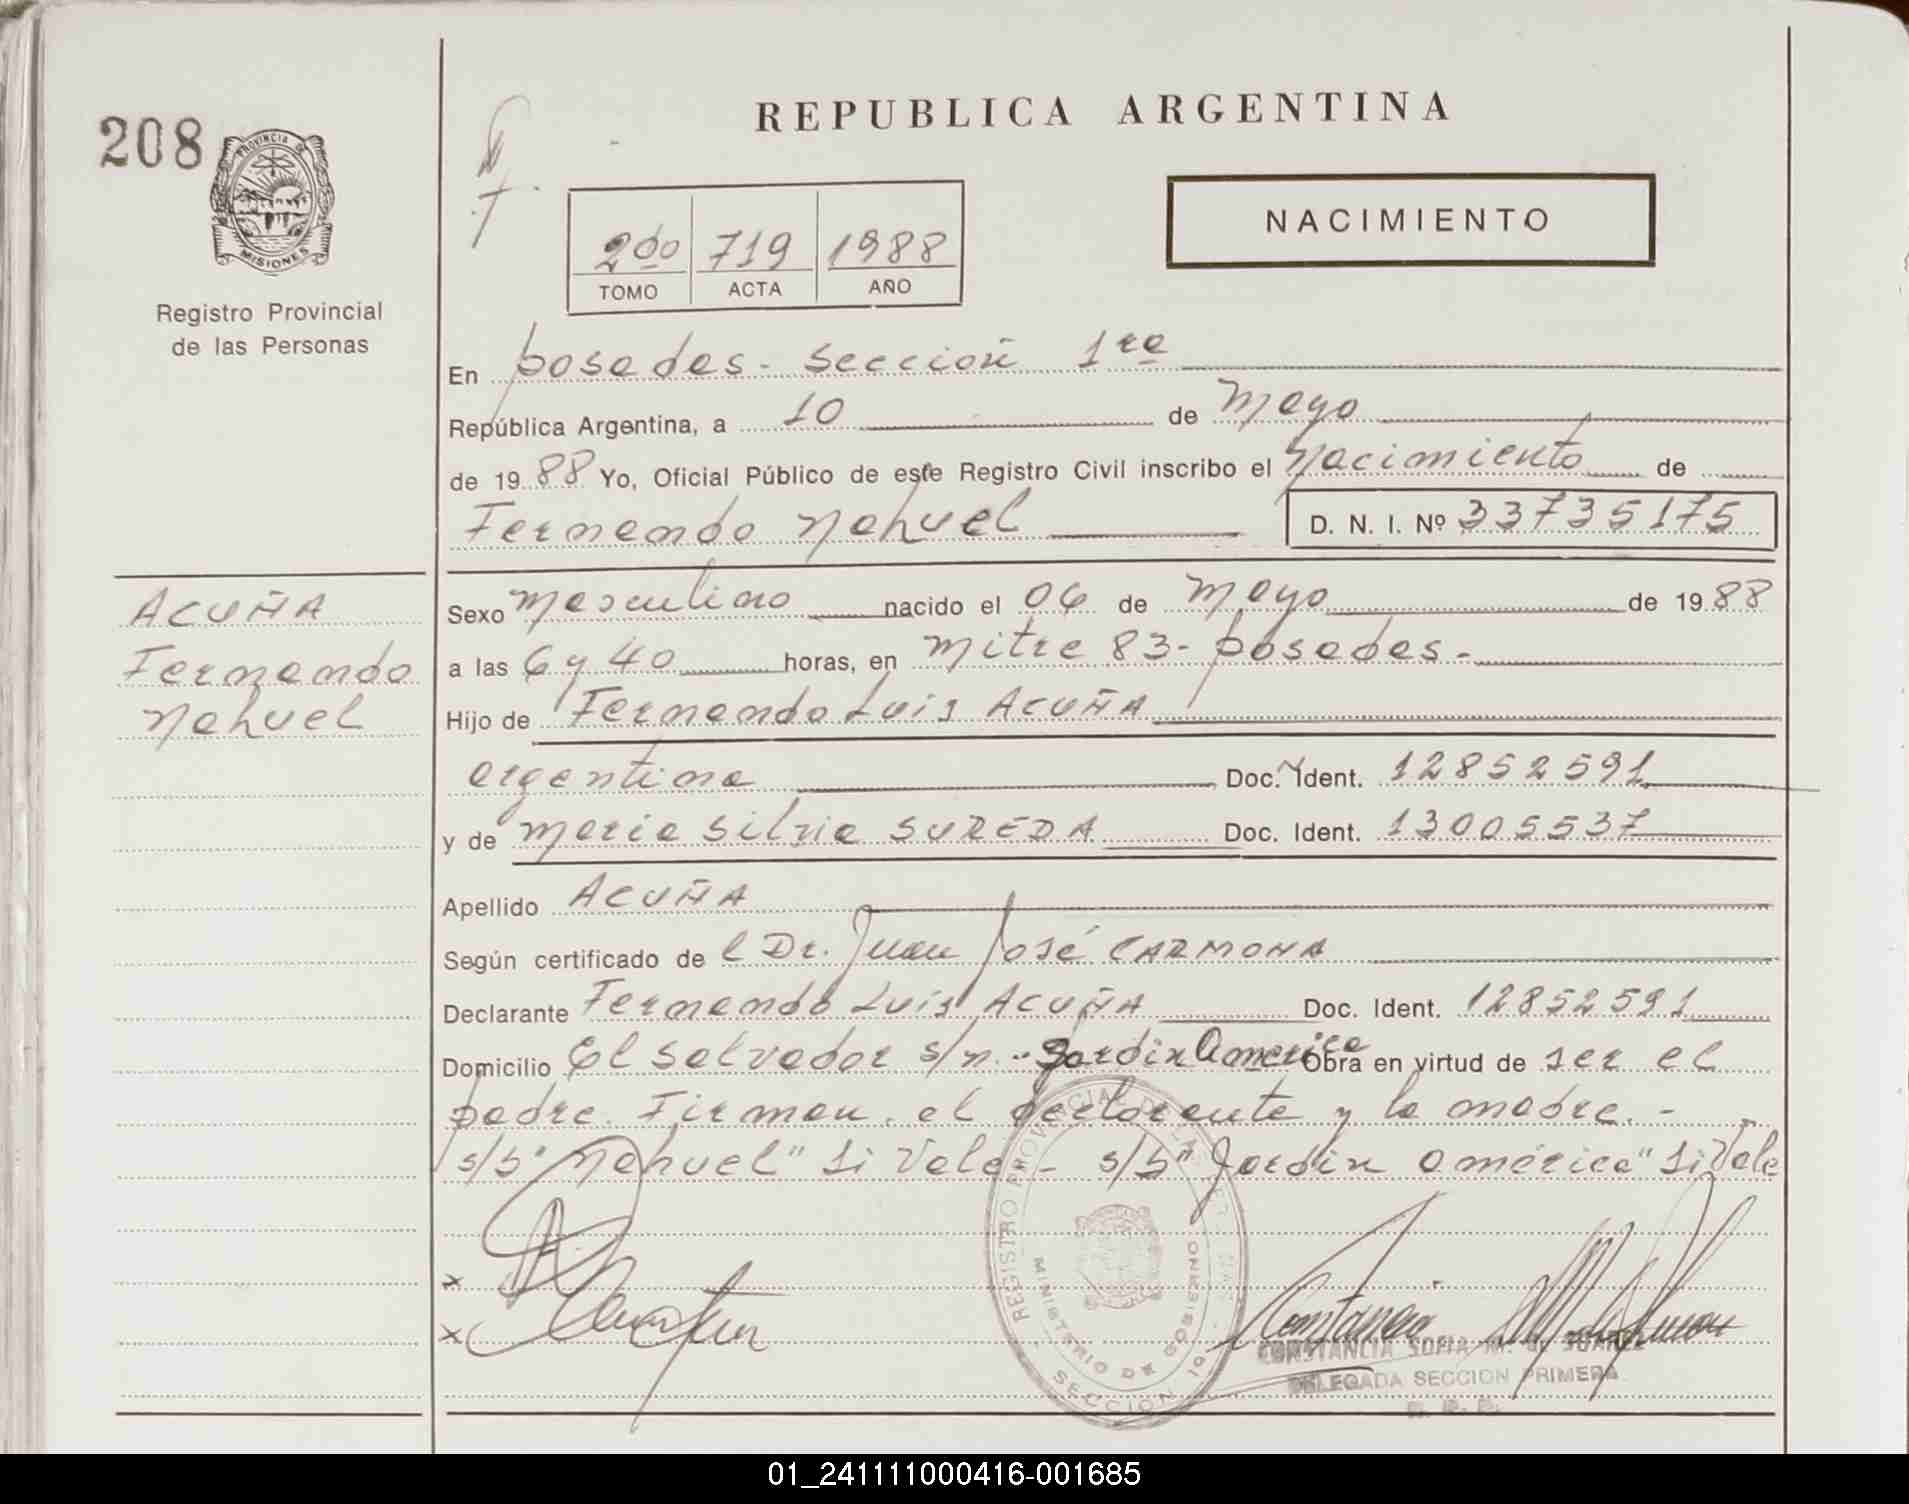 REPUBLICA ARGENTINA
208
PROVINCIA DE
MISIONES
Registro Provincial
de las Personas
2do 719 1988
TOMO ACTA AÑO
NACIMIENTO
En posadas - sección 1ra
República Argentina, a 10 de mayo
de 1988 Yo, Oficial Público de este Registro Civil inscribo el nacimiento de
Fernando Nahuel D. N. I. Nº 33735175
ACUÑA
Fernando
Nahuel
Sexo masculino nacido el 06 de mayo de 1988
a las 6 y 40 horas, en mitre 83 - posadas -
Hijo de Fernando Luis ACUÑA
argentina Doc. Ident. 12852591
y de maria silvia SUREDA Doc. Ident. 13005537
Apellido ACUÑA
Según certificado de l Dr. Juan José CARMONA
Declarante Fernando Luis ACUÑA Doc. Ident. 12852591
Domicilio El salvador s/n - Jardin America Obra en virtud de ser el
padre. Firman. el declarante y la madre. -
s/b "Nahuel" si Vale - s/b "Jardin américa" si Vale
x
x
REGISTRO PROVINCIAL DE LAS
MINISTERIO DE GOBIERNO
SECCION 1ª
CONSTANCIA SOFIA M. de SUAREZ
DELEGADA SECCION PRIMERA
01_241111000416-001685